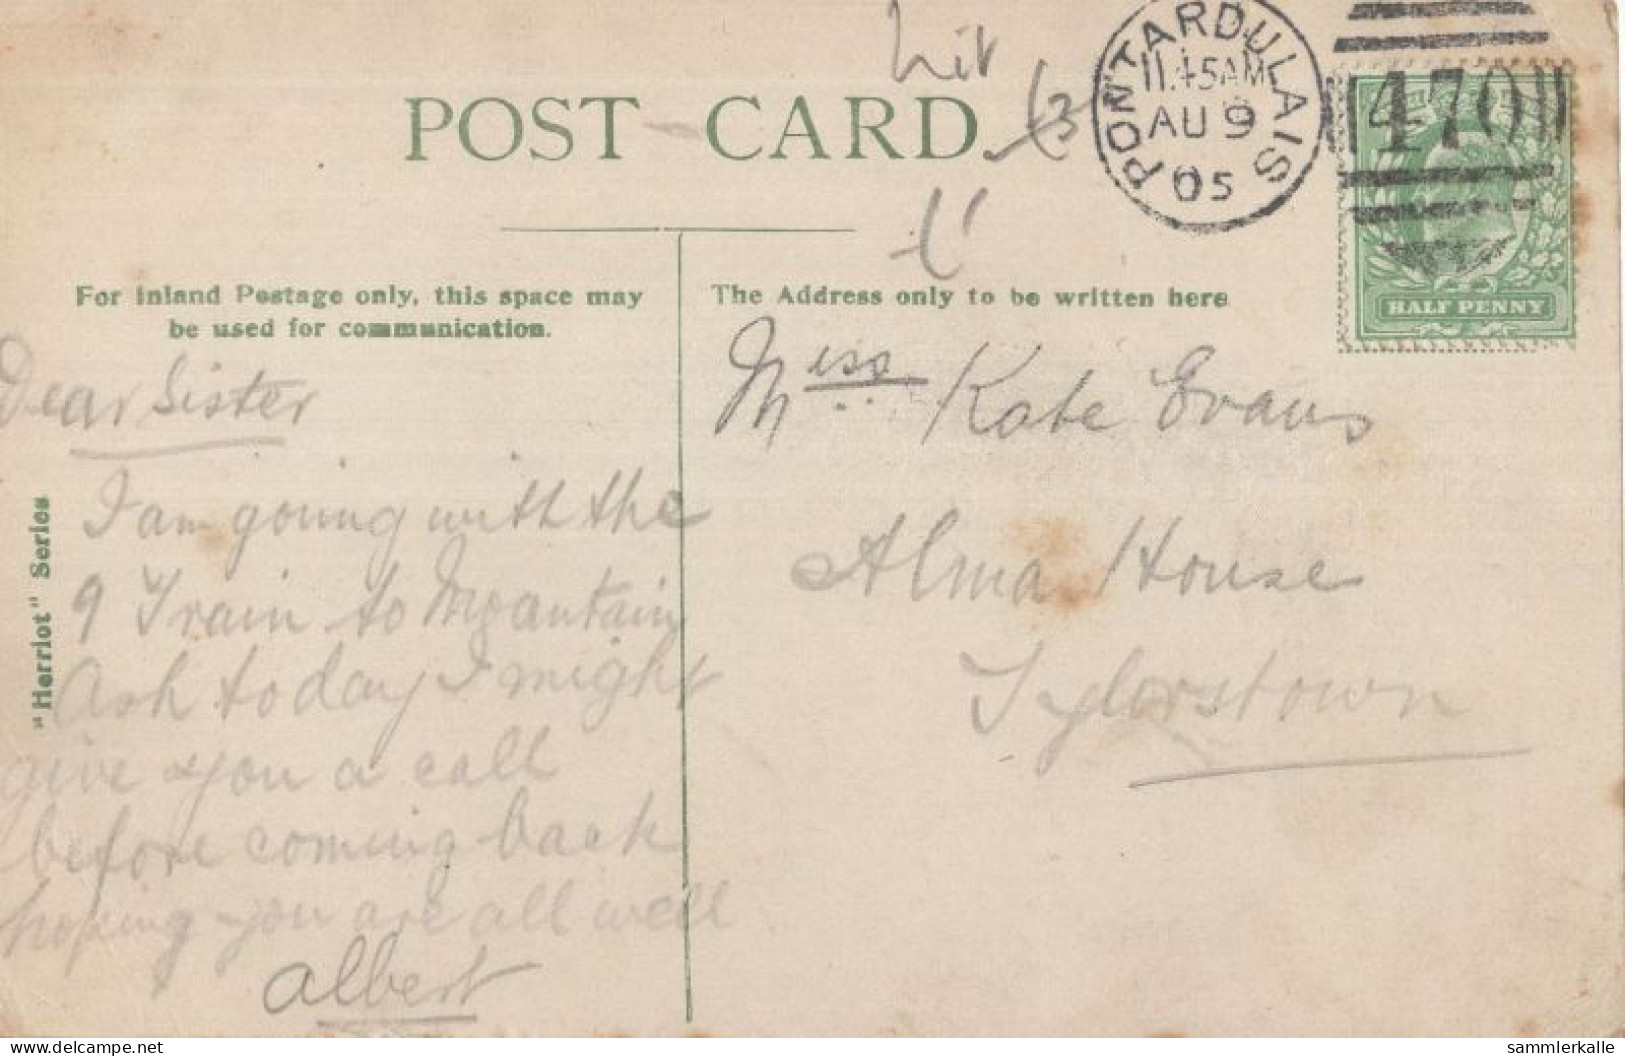 POST CARD
PONTARDULAIS
11.45AM
AU 9
05
470
HALF PENNY
For Inland Postage only, this space may
be used for communication.
The Address only to be written here
"Herriot" Series
Dear Sister
I am going with the
9 Train to Mountain
Ash today I might
give you a call
before coming back
hoping you are all well
Albert
Miss Kate Evans
Alma House
Tylorstown
delcampe.net
sammlerkalle